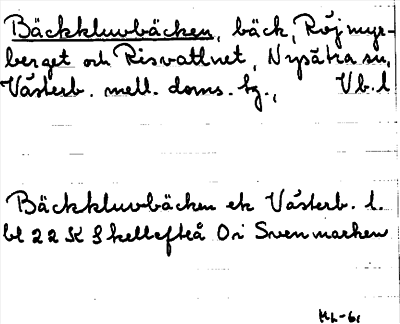 Bäckkluvbäcken, bäck, Röjmyr-
berget och Risvattnet, Nysätra sn,
Västerb. mell. doms. tg., Vb. l
Bäckkluvbäcken ek Västerb. l.
bl 22 K Skellefteå Ori Svenmarken